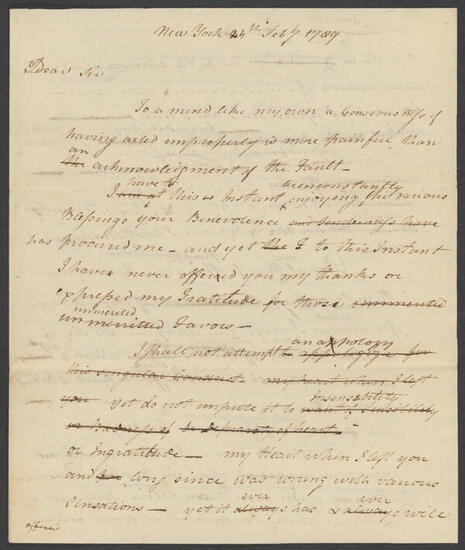 New York 24th Feby 1789
Dear Sir
To a mind like my own a Consciousness of
having acted improperly is more painful than
an
the acknowledgement of the Fault—
have to
I am at this Instant unconstantly enjoying the various
Blessings your Benevolence and tenderness have
has procured me— and yet the I to this Instant
I have never offered you my thanks or
expressed my Gratitude for those unmerited
unmerited
unmeritted Favors—
an apology
I shall not attempt to appologize for
this singular Conduct— my heart when I left
Insensibility
you yet do not impute it to want of Sensibility
or Ingratitude— my Heart when I left you
and for long since was wrung with various
ever ever
Sensations— yet it always has & always will
offered